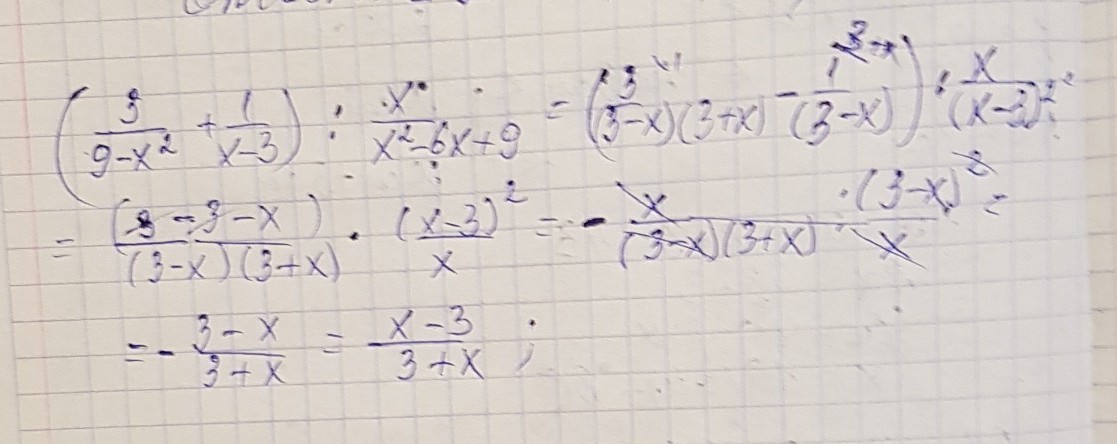 (3/(9-x²) + 1/(x-3)) : x/(x²-6x+9) = (3/((3-x)(3+x)) - 1/(3-x)) : x/(x-3)² =
= (3-3-x)/((3-x)(3+x)) · (x-3)²/x = - x/((3-x)(3+x)) · (3-x)²/x =
= - (3-x)/(3+x) = (x-3)/(3+x) ;